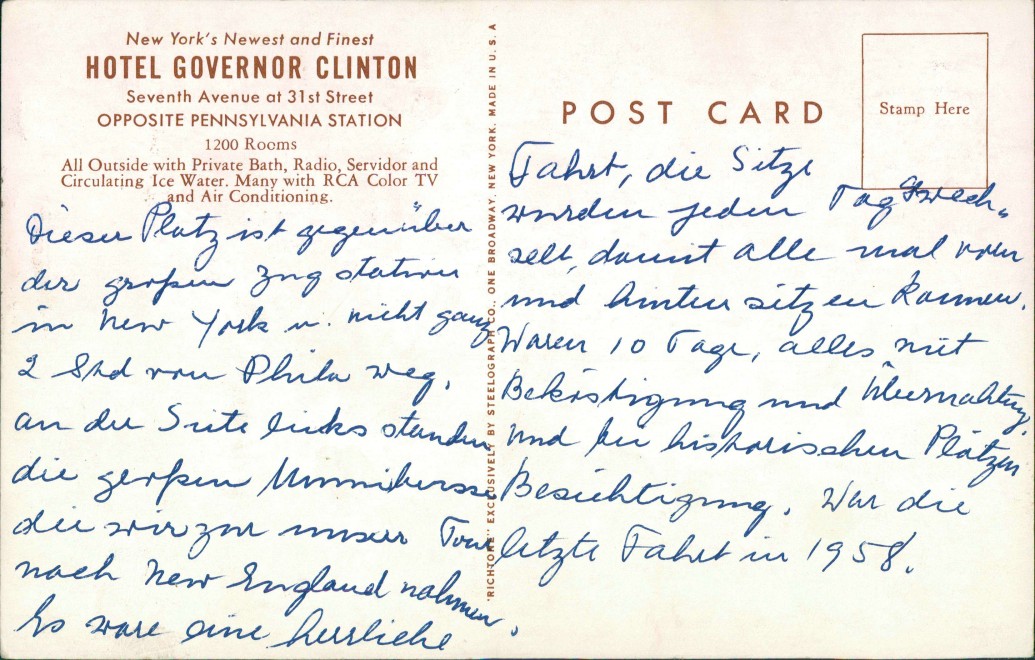 New York's Newest and Finest
HOTEL GOVERNOR CLINTON
Seventh Avenue at 31st Street
OPPOSITE PENNSYLVANIA STATION
1200 Rooms
All Outside with Private Bath, Radio, Servidor and
Circulating Ice Water. Many with RCA Color TV
and Air Conditioning.
Dieser Platz ist gegenüber
der großen Zugstation
in New York u. nicht ganz
2 Std von Phila weg,
an der Seite links standen
die großen Omnibusse
die wir zur unserer Tour
nach New England nahmen.
Es ware eine herrliche
"RICHTONE" EXCLUSIVELY BY STEELOGRAPH CO., ONE BROADWAY, NEW YORK. MADE IN U. S. A
POST CARD
Stamp Here
Fahrt, die Sitze
wurden jeden Tag gewech-
selt, damit alle mal vorn
und hinten sitzen konnen.
Waren 10 Tage, alles mit
Beköstigung und Übernachtung,
und bei historischen Plätzen
Besichtigung. War die
letzte Fahrt in 1958.